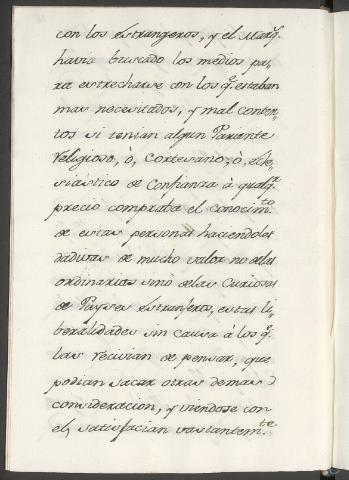 con los Estrangeros, y el Marq.s
havia buscado los medios pa-
ra estrecharse con los q.e estaban
mas necesitados, y mal conten-
tos si tenian algun Pariente
Religioso, ò, Cortesano, ò, ecle-
siastico de Confianza à qualq.r
precio compraba el conocim.to
de estas personas haciendoles
dadivas de mucho valor no de las
ordinarias sinò de las Curiosas
de Payses Estranjeros, estas li-
beralidades sin causa à los q.e
las recivian de pensar, que
podian sacar otras de mas
consideracion, y viendose con
el, satisfacian vastantem.te